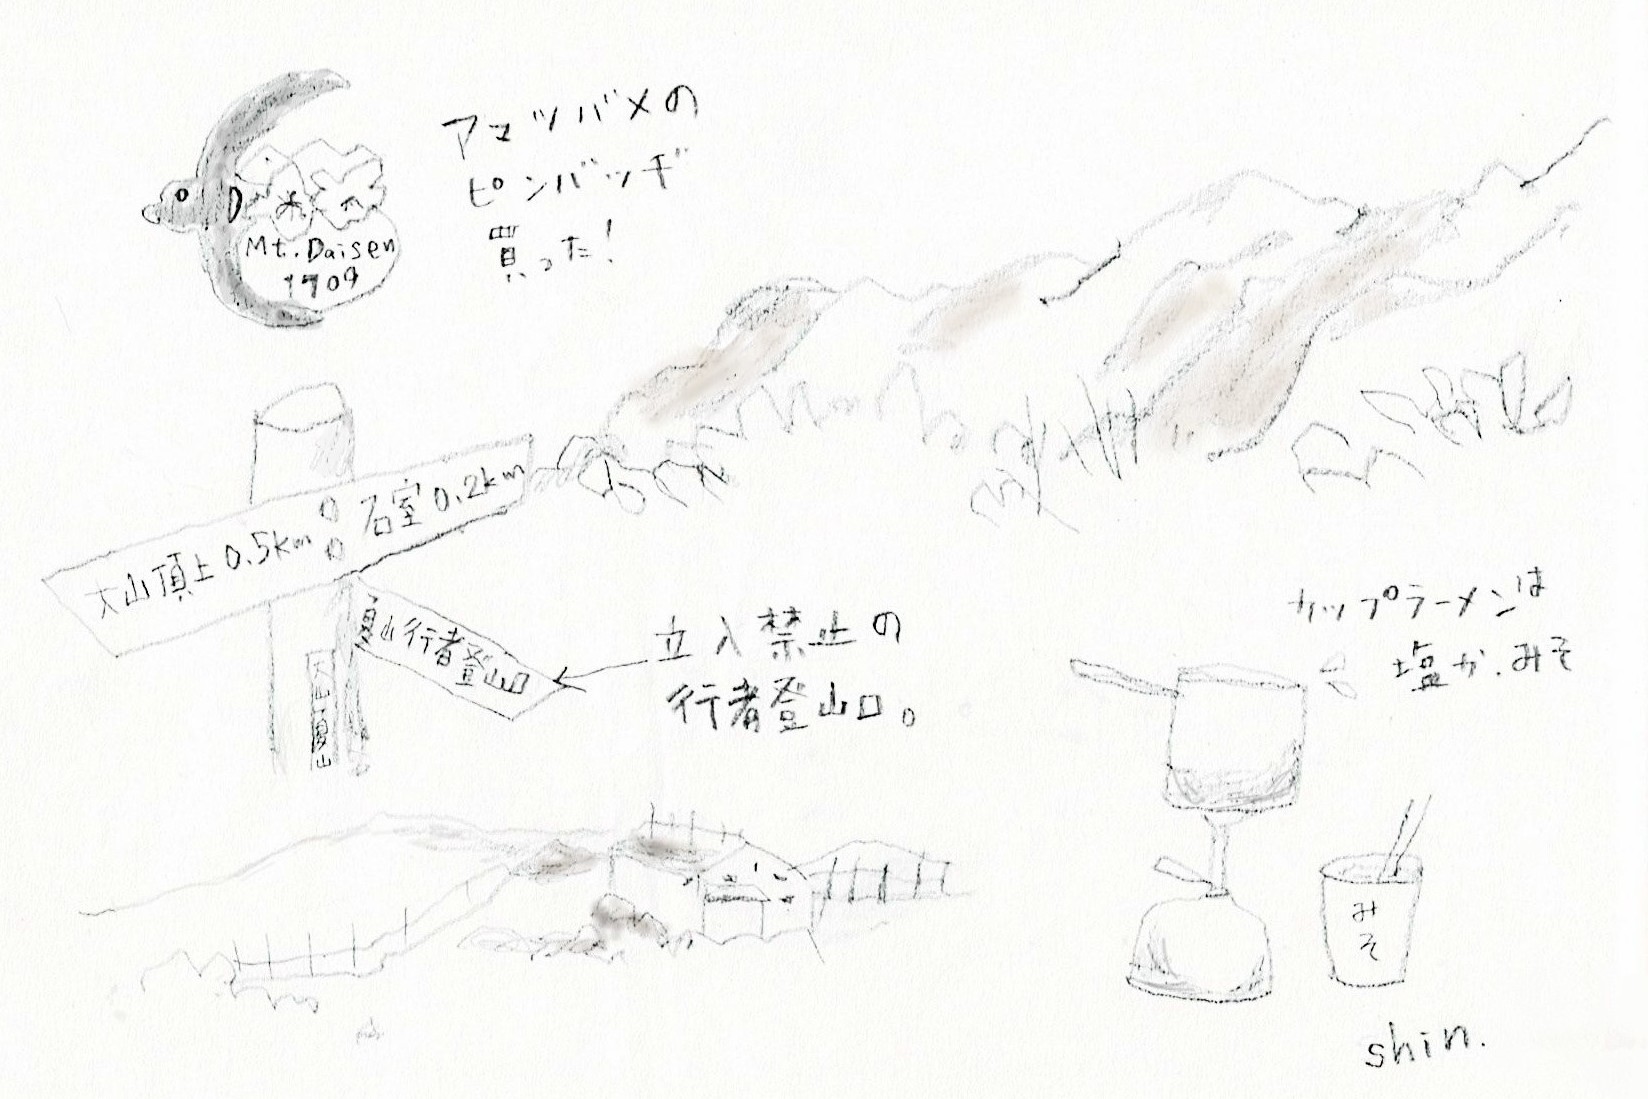 アマツバメの
ピンバッヂ
買った!
Mt.Daisen
1709
大山頂上0.5km
石室0.2km
夏山行者登山口
立入禁止の
行者登山口。
カップラーメンは
塩か.みそ
みそ
shin.